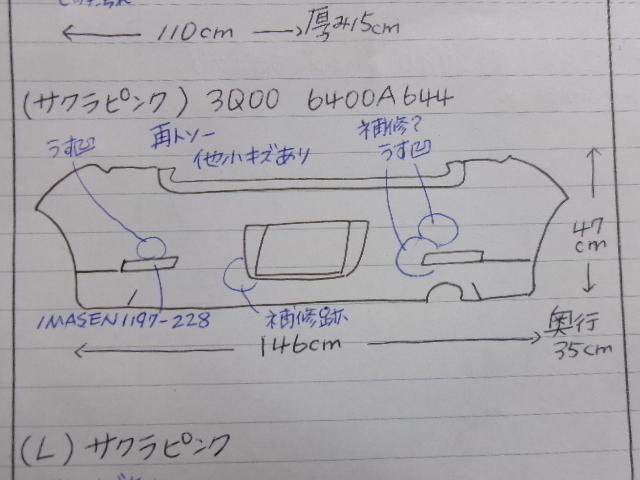 110cm 厚み15cm
(サクラピンク) 3Q00 6400A644
うす凹 再トソー 補修?
他小キズあり うす凹
47
cm
IMASEN1197-228 補修跡
146cm 奥行
35cm
(L) サクラピンク